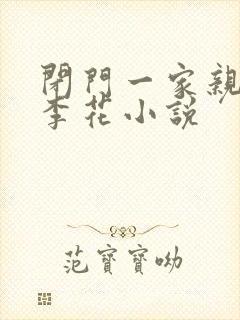 閉門一家親
李花小說
范寶寶呦